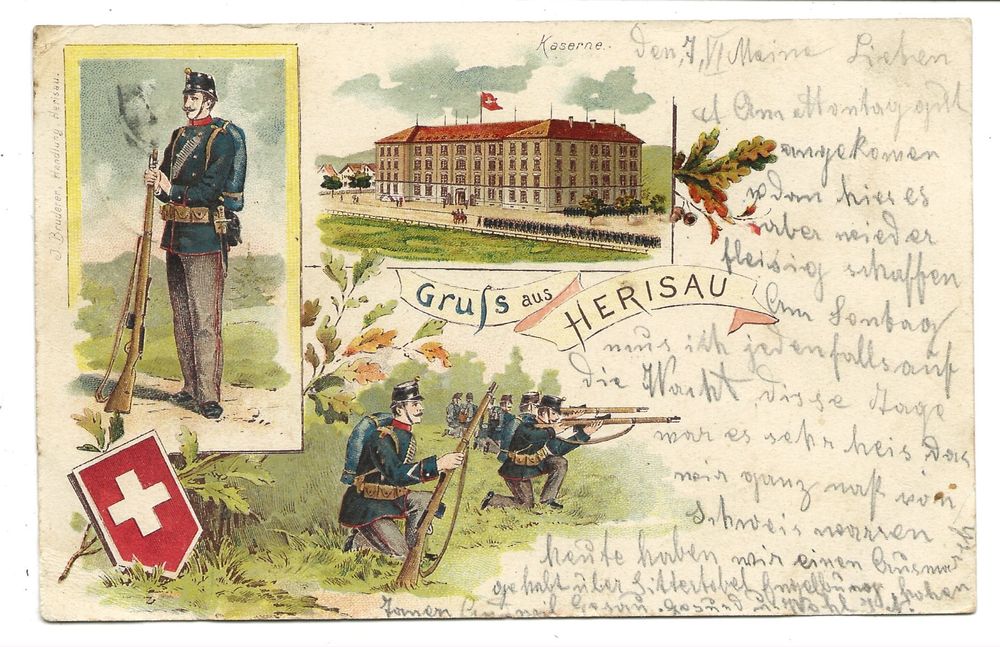 J. Bruderer, Handlung, Herisau.
Kaserne.
Gruss aus HERISAU
Den 7, VI Meine Lieben
Am Montag gutt
angekomen
dan hies es
aber wieder
fleisig schaffen
Am Sontag
mus ich jedenfalls auf
die Wacht, disse Tage
war es sehr heis Das
wir ganz naß von
Schweis warren
heute haben wir einen Ausmar
gehabt über
Gosau Gesund u. Wohl